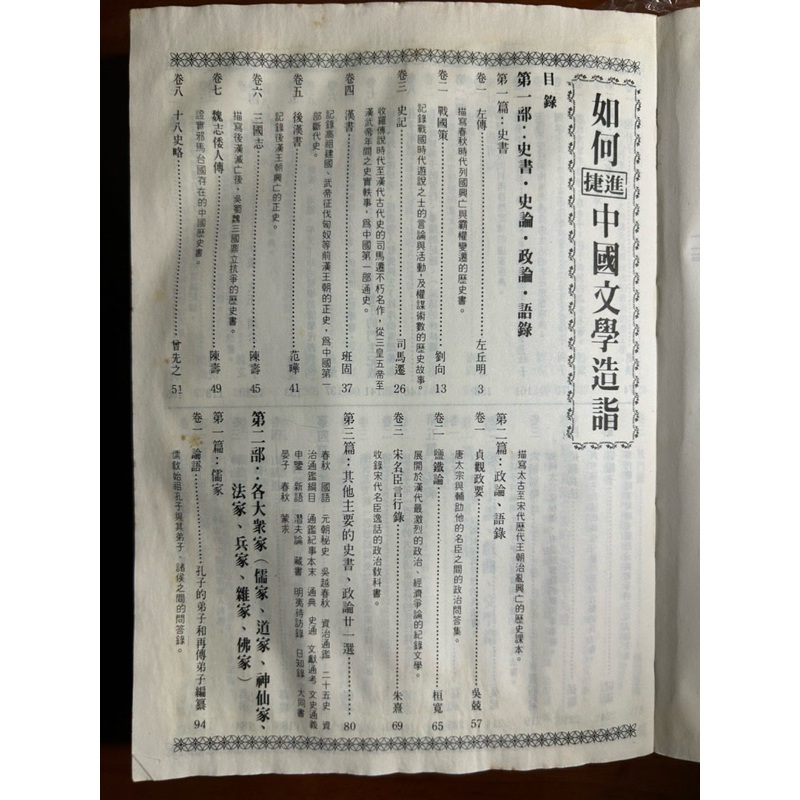 如何捷進中國文學造詣
目錄
第一部：史書・史論・政論・語錄
第一篇：史書
卷一 左傳……………………左丘明 3
描寫春秋時代列國興亡與霸權變遷的歷史書。
卷二 戰國策……………………劉向 13
記錄戰國時代遊說之士的言論與活動，及權謀術數的歷史故事。
卷三 史記……………………司馬遷 26
收羅傳說時代至漢代古代史的司馬遷不朽名作，從三皇五帝至
漢武帝年間之史實軼事，爲中國第一部通史。
卷四 漢書……………………班固 37
記錄高祖建國、武帝征伐匈奴等前漢王朝的正史，爲中國第一
部斷代史。
卷五 後漢書……………………范曄 41
記錄後漢王朝興亡的正史。
卷六 三國志……………………陳壽 45
描寫後漢滅亡後，吳蜀魏三國鼎立抗爭的歷史書。
卷七 魏志倭人傳……………………陳壽 49
證實邪馬台國存在的中國歷史書。
卷八 十八史略……………………曾先之 51
描寫太古至宋代歷代王朝治亂興亡的歷史課本。
第二篇：政論、語錄
卷一 貞觀政要……………………吳兢 57
唐太宗與輔助他的名臣之間的政治問答集。
卷二 鹽鐵論……………………桓寬 65
展開於漢代最激烈的政治、經濟爭論的紀錄文學。
卷三 宋名臣言行錄……………………朱熹 69
收錄宋代名臣逸話的政治敎科書。
第三篇：其他主要的史書、政論廿一選……………………80
春秋 國語 元朝秘史 吳越春秋 資治通鑑 二十五史 資
治通鑑綱目 通鑑紀事本末 通典 史通 文獻通考 文史通義
申鑒 新語 潛夫論 藏書 明夷待訪錄 日知錄 大同書
晏子 春秋 蒙求
第二部：各大衆家（儒家、道家、神仙家、
法家、兵家、雜家、佛家）
第一篇：儒家
卷一 論語……………………孔子的弟子和再傳弟子編纂 94
儒敎始祖孔子與其弟子、諸侯之間的問答錄。